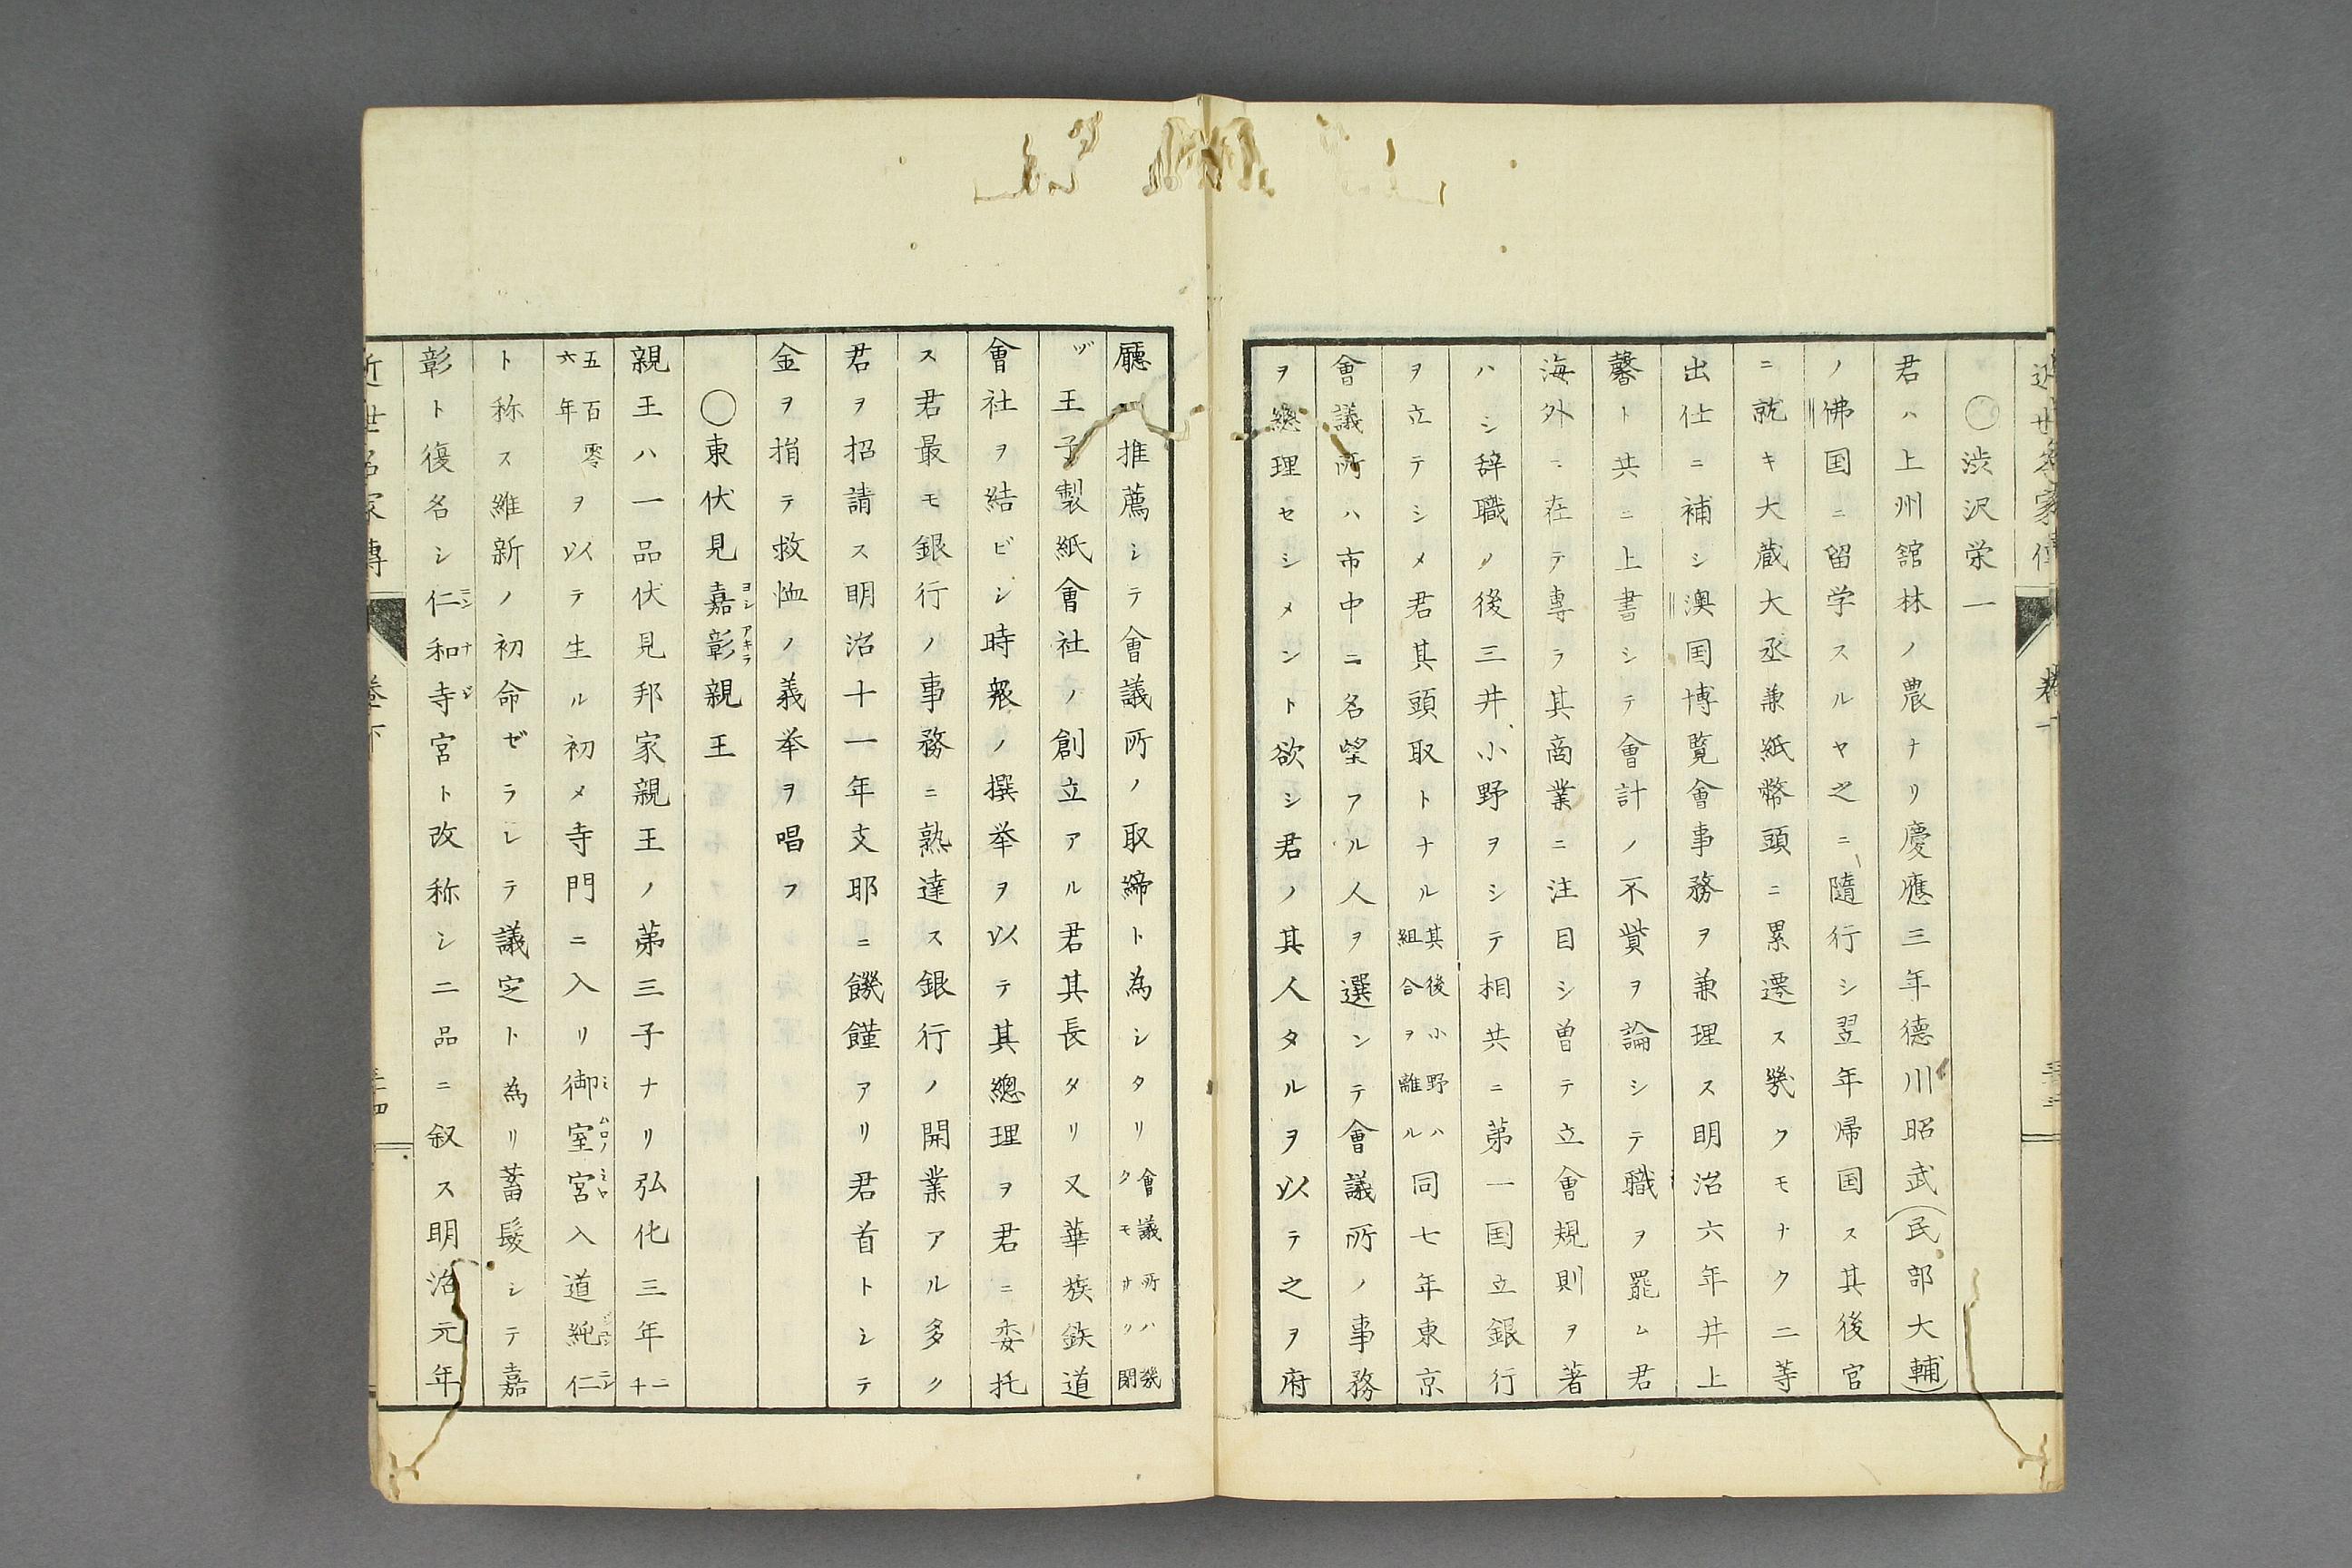 近世名家傳
〇渋沢栄一
君ハ上州舘林ノ農ナリ慶應三年德川昭武(民部大輔)
ノ佛国ニ留学スルヤ之ニ隨行シ翌年帰国ス其後官
ニ就キ大蔵大丞兼紙幣頭ニ累遷ス幾クモナク二等
出仕ニ補シ澳国博覧會事務ヲ兼理ス明治六年井上
馨ト共ニ上書シテ會計ノ不贅ヲ論シテ職ヲ罷ム君
海外ニ在テ專ラ其商業ニ注目シ曽テ立會規則ヲ著
ハシ辞職ノ後三井小野ヲシテ相共ニ第一国立銀行
ヲ立テシメ君其頭取トナル其後小野ハ組合ヲ離ル同七年東京
會議所ハ市中ニ名望アル人ヲ選ンテ會議所ノ事務
ヲ總理セシメント欲シ君ノ其人タルヲ以テ之ヲ府
廳推薦シテ會議所ノ取締ト為シタリ會議所ハ幾クモナク閉
ヅ王子製紙會社ノ創立アル君其長タリ又華族鉄道
會社ヲ結ビシ時衆ノ撰挙ヲ以テ其總理ヲ君ニ委托
ス君最モ銀行ノ事務ニ熟達ス銀行ノ開業アル多ク
君ヲ招請ス明治十一年支耶ニ饑饉アリ君首トシテ
金ヲ捐テ救恤ノ義挙ヲ唱フ
〇東伏見嘉彰親王
親王ハ一品伏見邦家親王ノ第三子ナリ弘化三年二千
五百零六年ヲ以テ生ル初メ寺門ニ入リ御室宮入道純仁
ト称ス維新ノ初命ゼラレテ議定ト為リ蓄髮シテ嘉
彰ト復名シ仁和寺宮ト改称シ二品ニ叙ス明治元年
近世名家傳 卷下